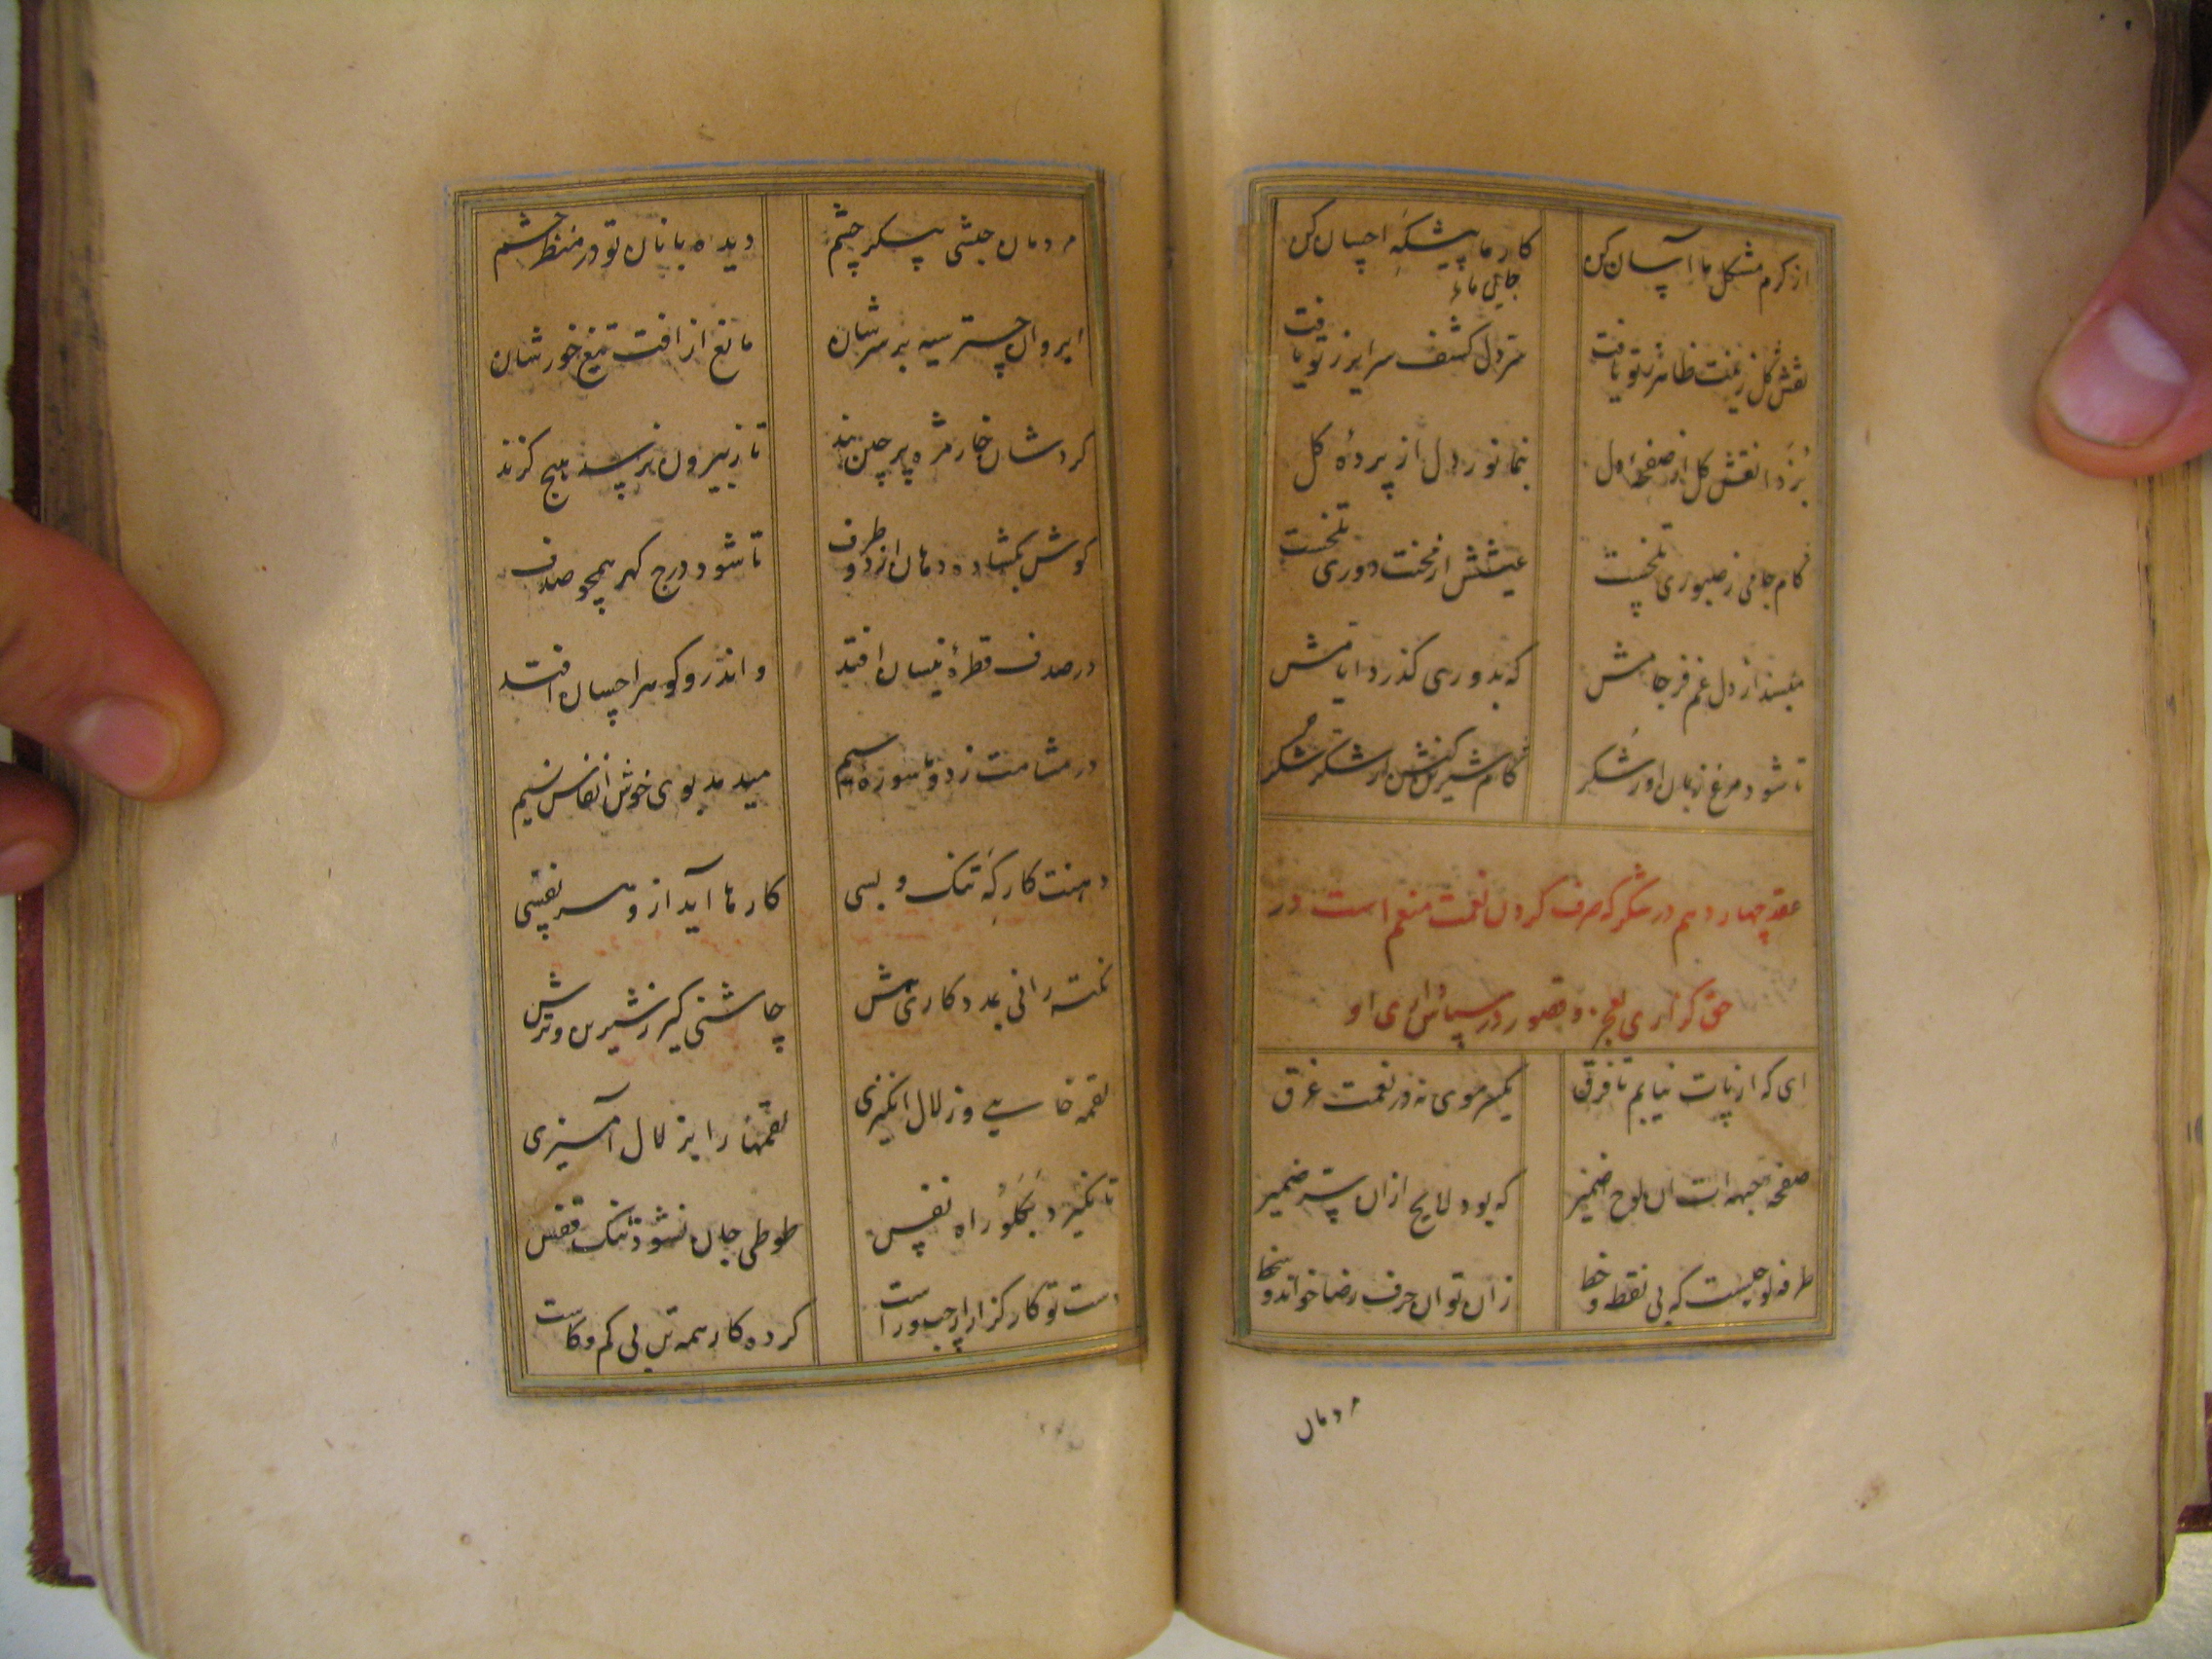 از کرم مشکل ما آسان کن کار ما پیشکه احسان کن
جای ما
نقش گل زینت ظاهر ز تو یافت سر دل کشف سرایر ز تو یافت
بزدا نقش گل از صفحه دل بنما نور دل از پرده گل
کام جامی ز صبوری تلخست عیشش از محنت دوری تلخست
مپسند از دل غم فرجامش که بدوری گذرد ایامش
تا شود مرغ زبان آور شکر کام شیرین کنش از شکر شکر
عقد چهاردهم در شکر که صرف کردن نعمت منعم است در
حق گزاری و بعجز و قصور در سپاس داری او
ای که از پات نیابم تا فرق یکسر موی نه در نعمت غرق
صفحه جبهه ات آن لوح ضمیر که بود لایح ازان سر ضمیر
طرفه لوحیست که بی نقطه و خط زان توان حرف رضا خواند و سخط
مردمان
مردمان حبشی پیکر چشم دیده بانان تو در منظر چشم
ابروان چتر سیه بر سرشان مانع از آفت تیغ خورشان
کردشان خار مژه پرچین بند تا ز بیرون نرسد هیچ گزند
گوش بگشاده دهان از دو طرف تا شود درج گهر همچو صدف
در صدف قطره نیسان افتد واندرو گوهر احسان افتد
در مشامت ز دو ماسوره سیم میدمد بوی خوش انفاس نسیم
دهنت کارگه تنگ و بسی کارها آید ازو هر نفسی
نکته رانی بمددکاری هش چاشنی گیر ز شیرین و ترش
لقمه خایی و زلال انگیزی لقمها را بزلال آمیزی
تا نگیرد بگلو راه نفس طوطی جان نشود تنگ قفس
دست تو کارگزار از چپ و راست کرده کار همه تن بی کم و کاست